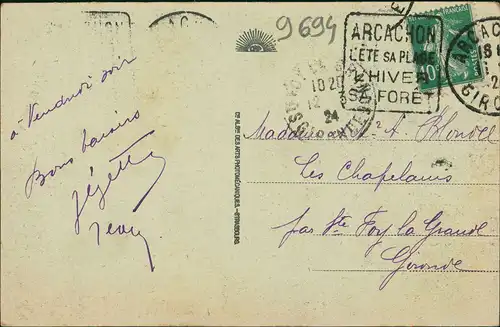 9694
ARCACHON
L'ÉTÉ SA PLAGE
L'HIVER
SA FORÊT
ARCAC
GIRO
10 20
24
à Vendredi soir
Bons baisers
Cie ALSNE DES ARTS PHOTOMÉCANIQUES - STRASBOURG
A. Blondel
Les Chapelains
par Ste Foy la Grande
Gironde